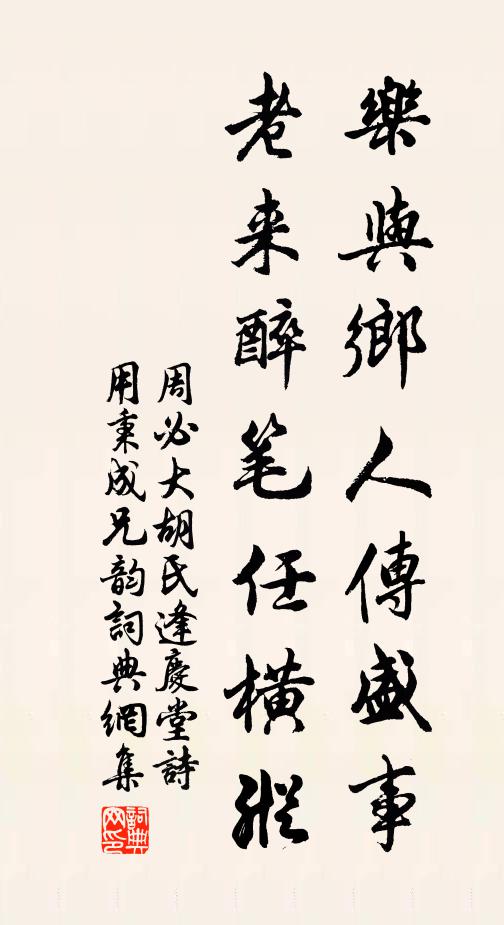 樂與鄉人傳盛事
老来醉笔任橫縱
周必大胡氏逢慶堂詩
用秉成兄韵詞典網集
詞典网印